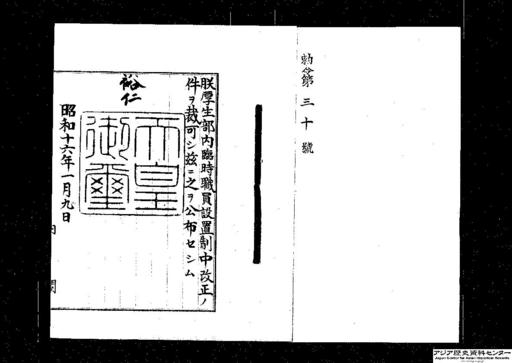 勅令第三十號
朕厚生部内臨時職員設置制中改正ノ
件ヲ裁可シ玆ニ之ヲ公布セシム
裕仁
天皇
御璽
昭和十六年一月九日
内閣
アジア歴史資料センター
Japan Center for Asian Historical Records